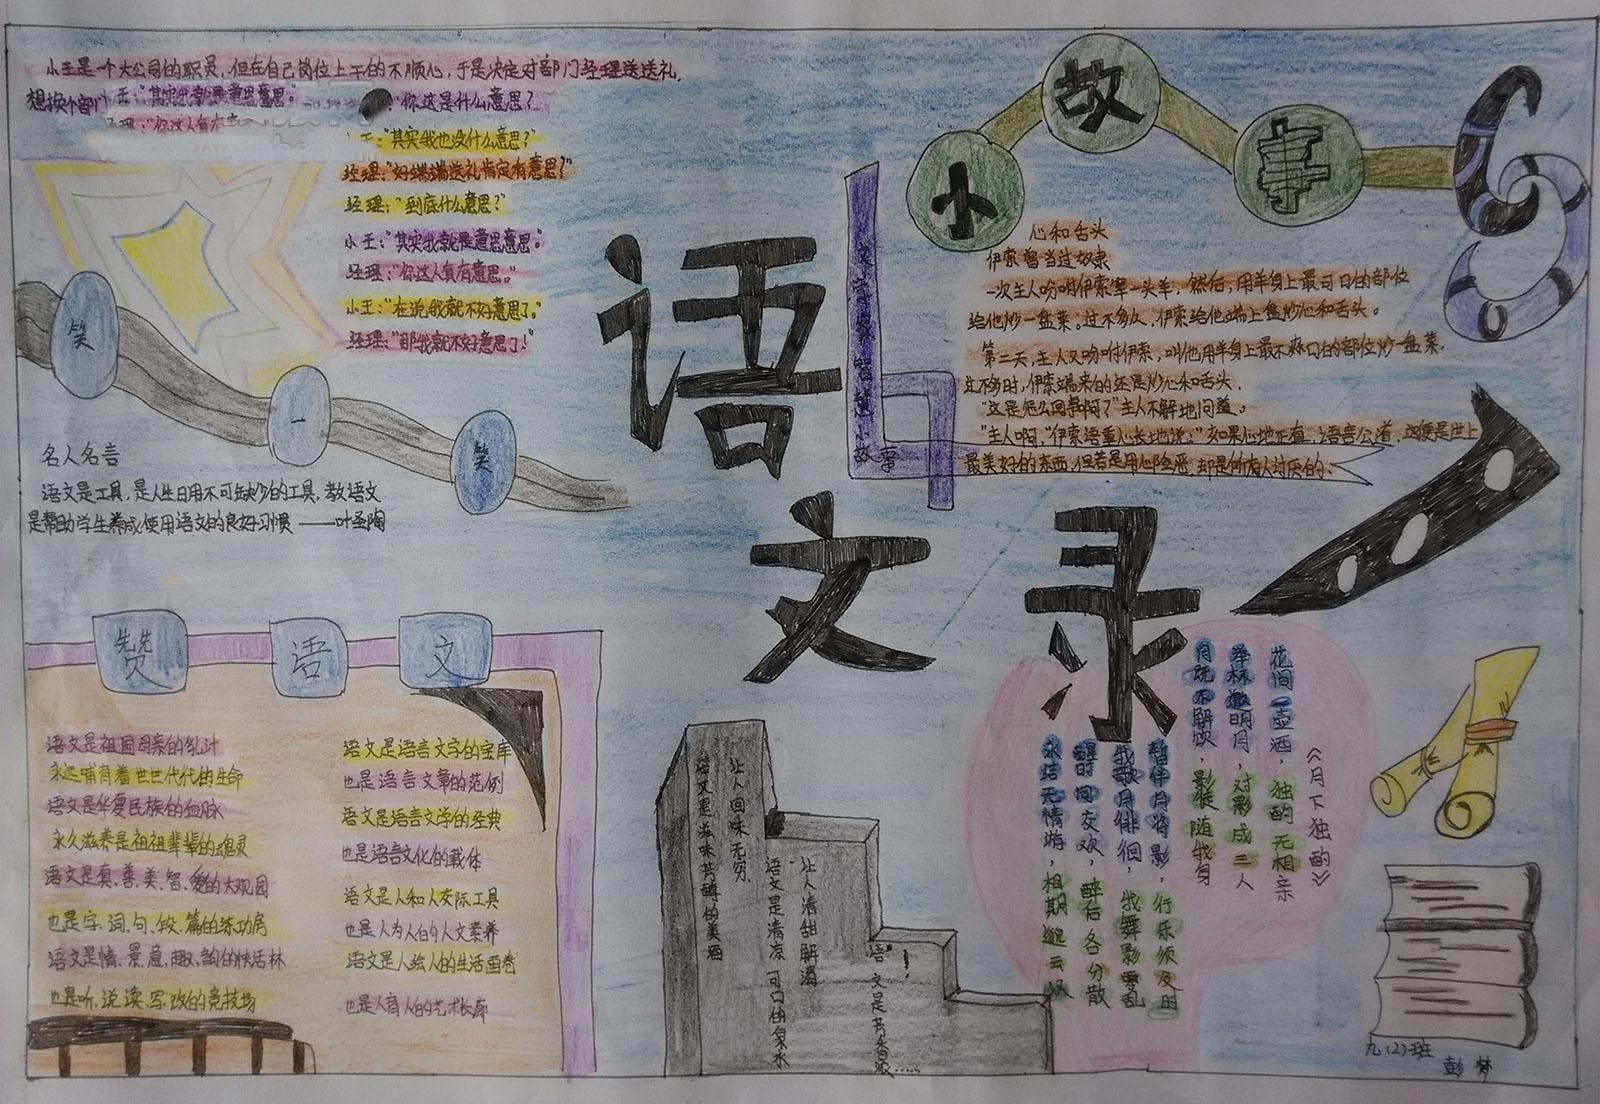 小王是一个大公司的职员，但在自己岗位上干的不顺心，于是决定对部门经理送送礼，
想换个部门
小王："其实我就是意思意思。"
经理："你这人真有意
"你这是什么意思？"
小王："其实我也没什么意思？"
经理："好端端送礼肯定有意思？"
经理："到底什么意思？"
小王："其实我就是意思意思。"
经理："你这人真有意思。"
小王："在说我就不好意思了。"
经理："那我就不好意思了！
笑一笑
名人名言
语文是工具，是人生日用不可缺少的工具，教语文
是帮助学生养成使用语文的良好习惯 ——叶圣陶
赞语文
语文是祖国母亲的乳汁
永远哺育着世世代代的生命
语文是华夏民族的血脉
永久滋养是祖祖辈辈的魂灵
语文是真、善、美、智、爱的大观园
也是字、词、句、段、篇的练功房
语文是情、景、意、趣、韵的快活林
也是听、说、读、写、改的竞技场
语文是语言文字的宝库
也是语言文章的范例
语文是语言文学的经典
也是语言文化的载体
语文是人和人交际工具
也是人为人的人文素养
语文是人绘人的生活画卷
也是人育人的艺术长廊
语文录
小故事
智慧小故事
心和舌头
伊索曾当过奴隶
一次主人吩咐伊索宰一头羊，然后，用羊身上最可口的部位
给他炒一盘菜。过不多久，伊索给他端上盘炒心和舌头。
第二天，主人又吩咐伊索，叫他用羊身上最不麻口的部位炒一盘菜。
过不多时，伊索端来的还是炒心和舌头、
"这是怎么回事啊？"主人不解地问道。
"主人啊，"伊索语重心长地说："如果心地正直，语言公道，这便是世上
最美好的东西，但若是用心险恶，却是所有人讨厌的：
《月下独酌》
花间一壶酒，独酌无相亲
举杯邀明月，对影成三人
月既不解饮，影徒随我身
暂伴月将影，行乐须及时
我歌月徘徊，我舞影零乱
醒时同交欢，醉后各分散
永结无情游，相期邈云汉
语文是滋味芳醇的美酒
让人回味无穷、
语文是清凉可口的泉水
让人清甜解渴
语文是芳香浓……
九（2）班
彭梦